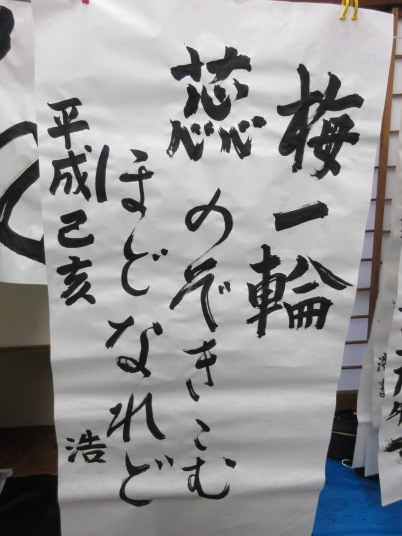 梅一輪
蕊のぞきこむ
ほどなれど
平成己亥
浩